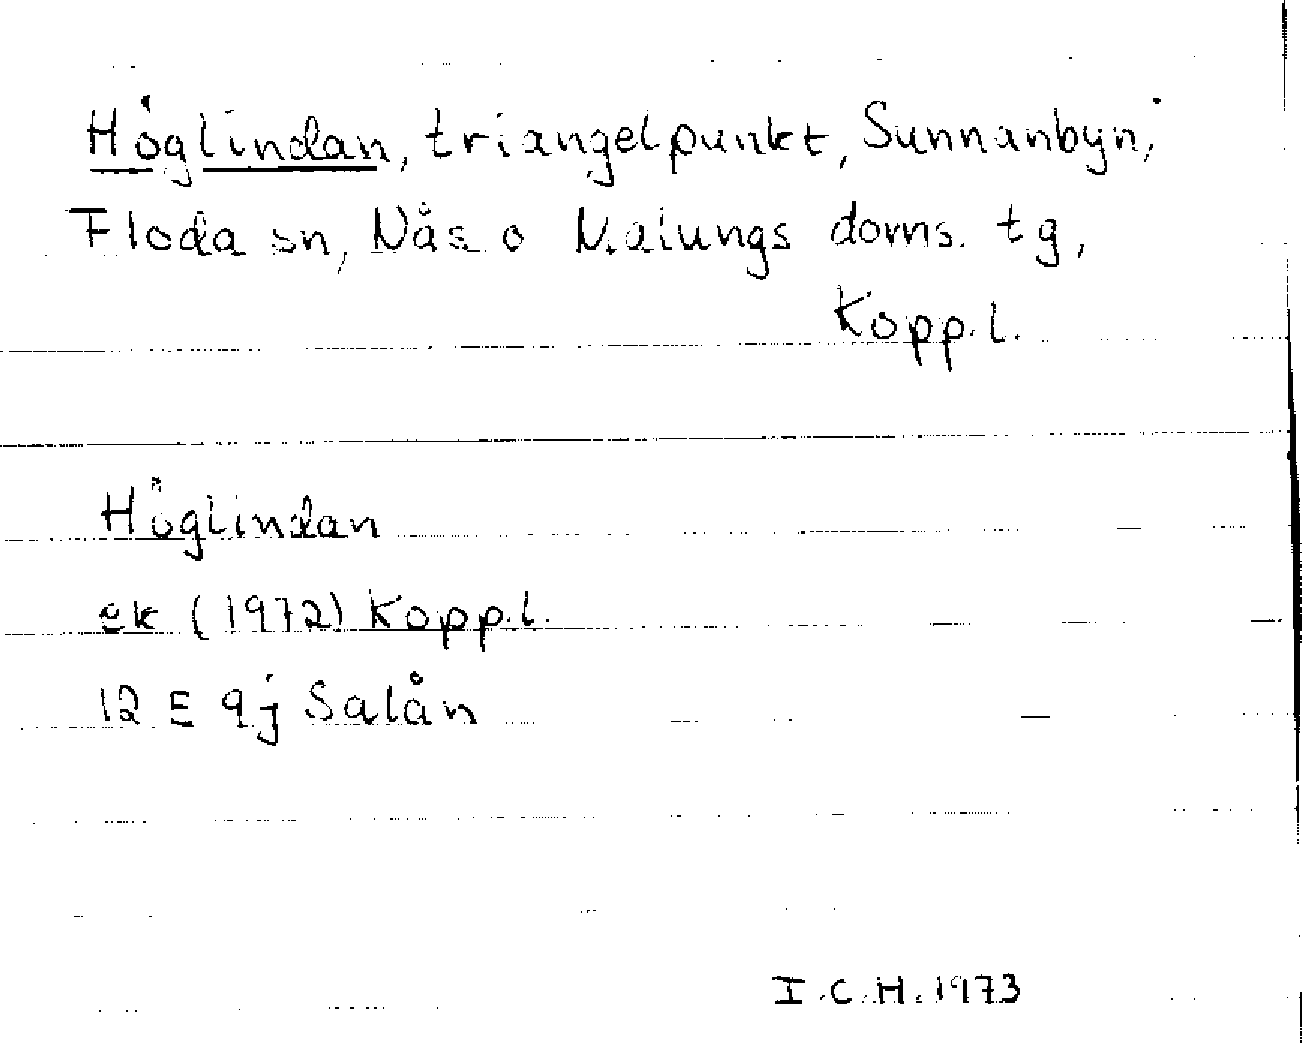 Höglindan, triangelpunkt, Sunnanbyn,
Floda sn, Nås o Malungs doms. tg,
Kopp.l.
Höglindan
ek (1972) Kopp.l.
12 E 9j Salån
I.C.H. 1973